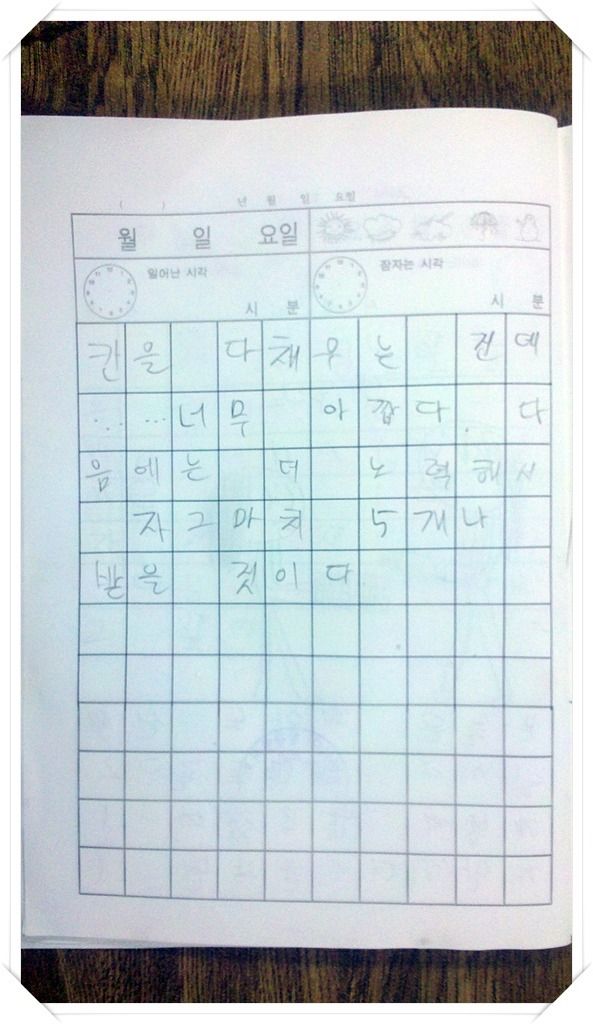 ( ) 년 월 일 요일
월 일 요일
일어난 시각 시 분
잠자는 시각 시 분
칸을 다채우는 건데
... ...너무 아깝다. 다
음에는 더 노력해서
자그마치 5개나
받을 것이다.